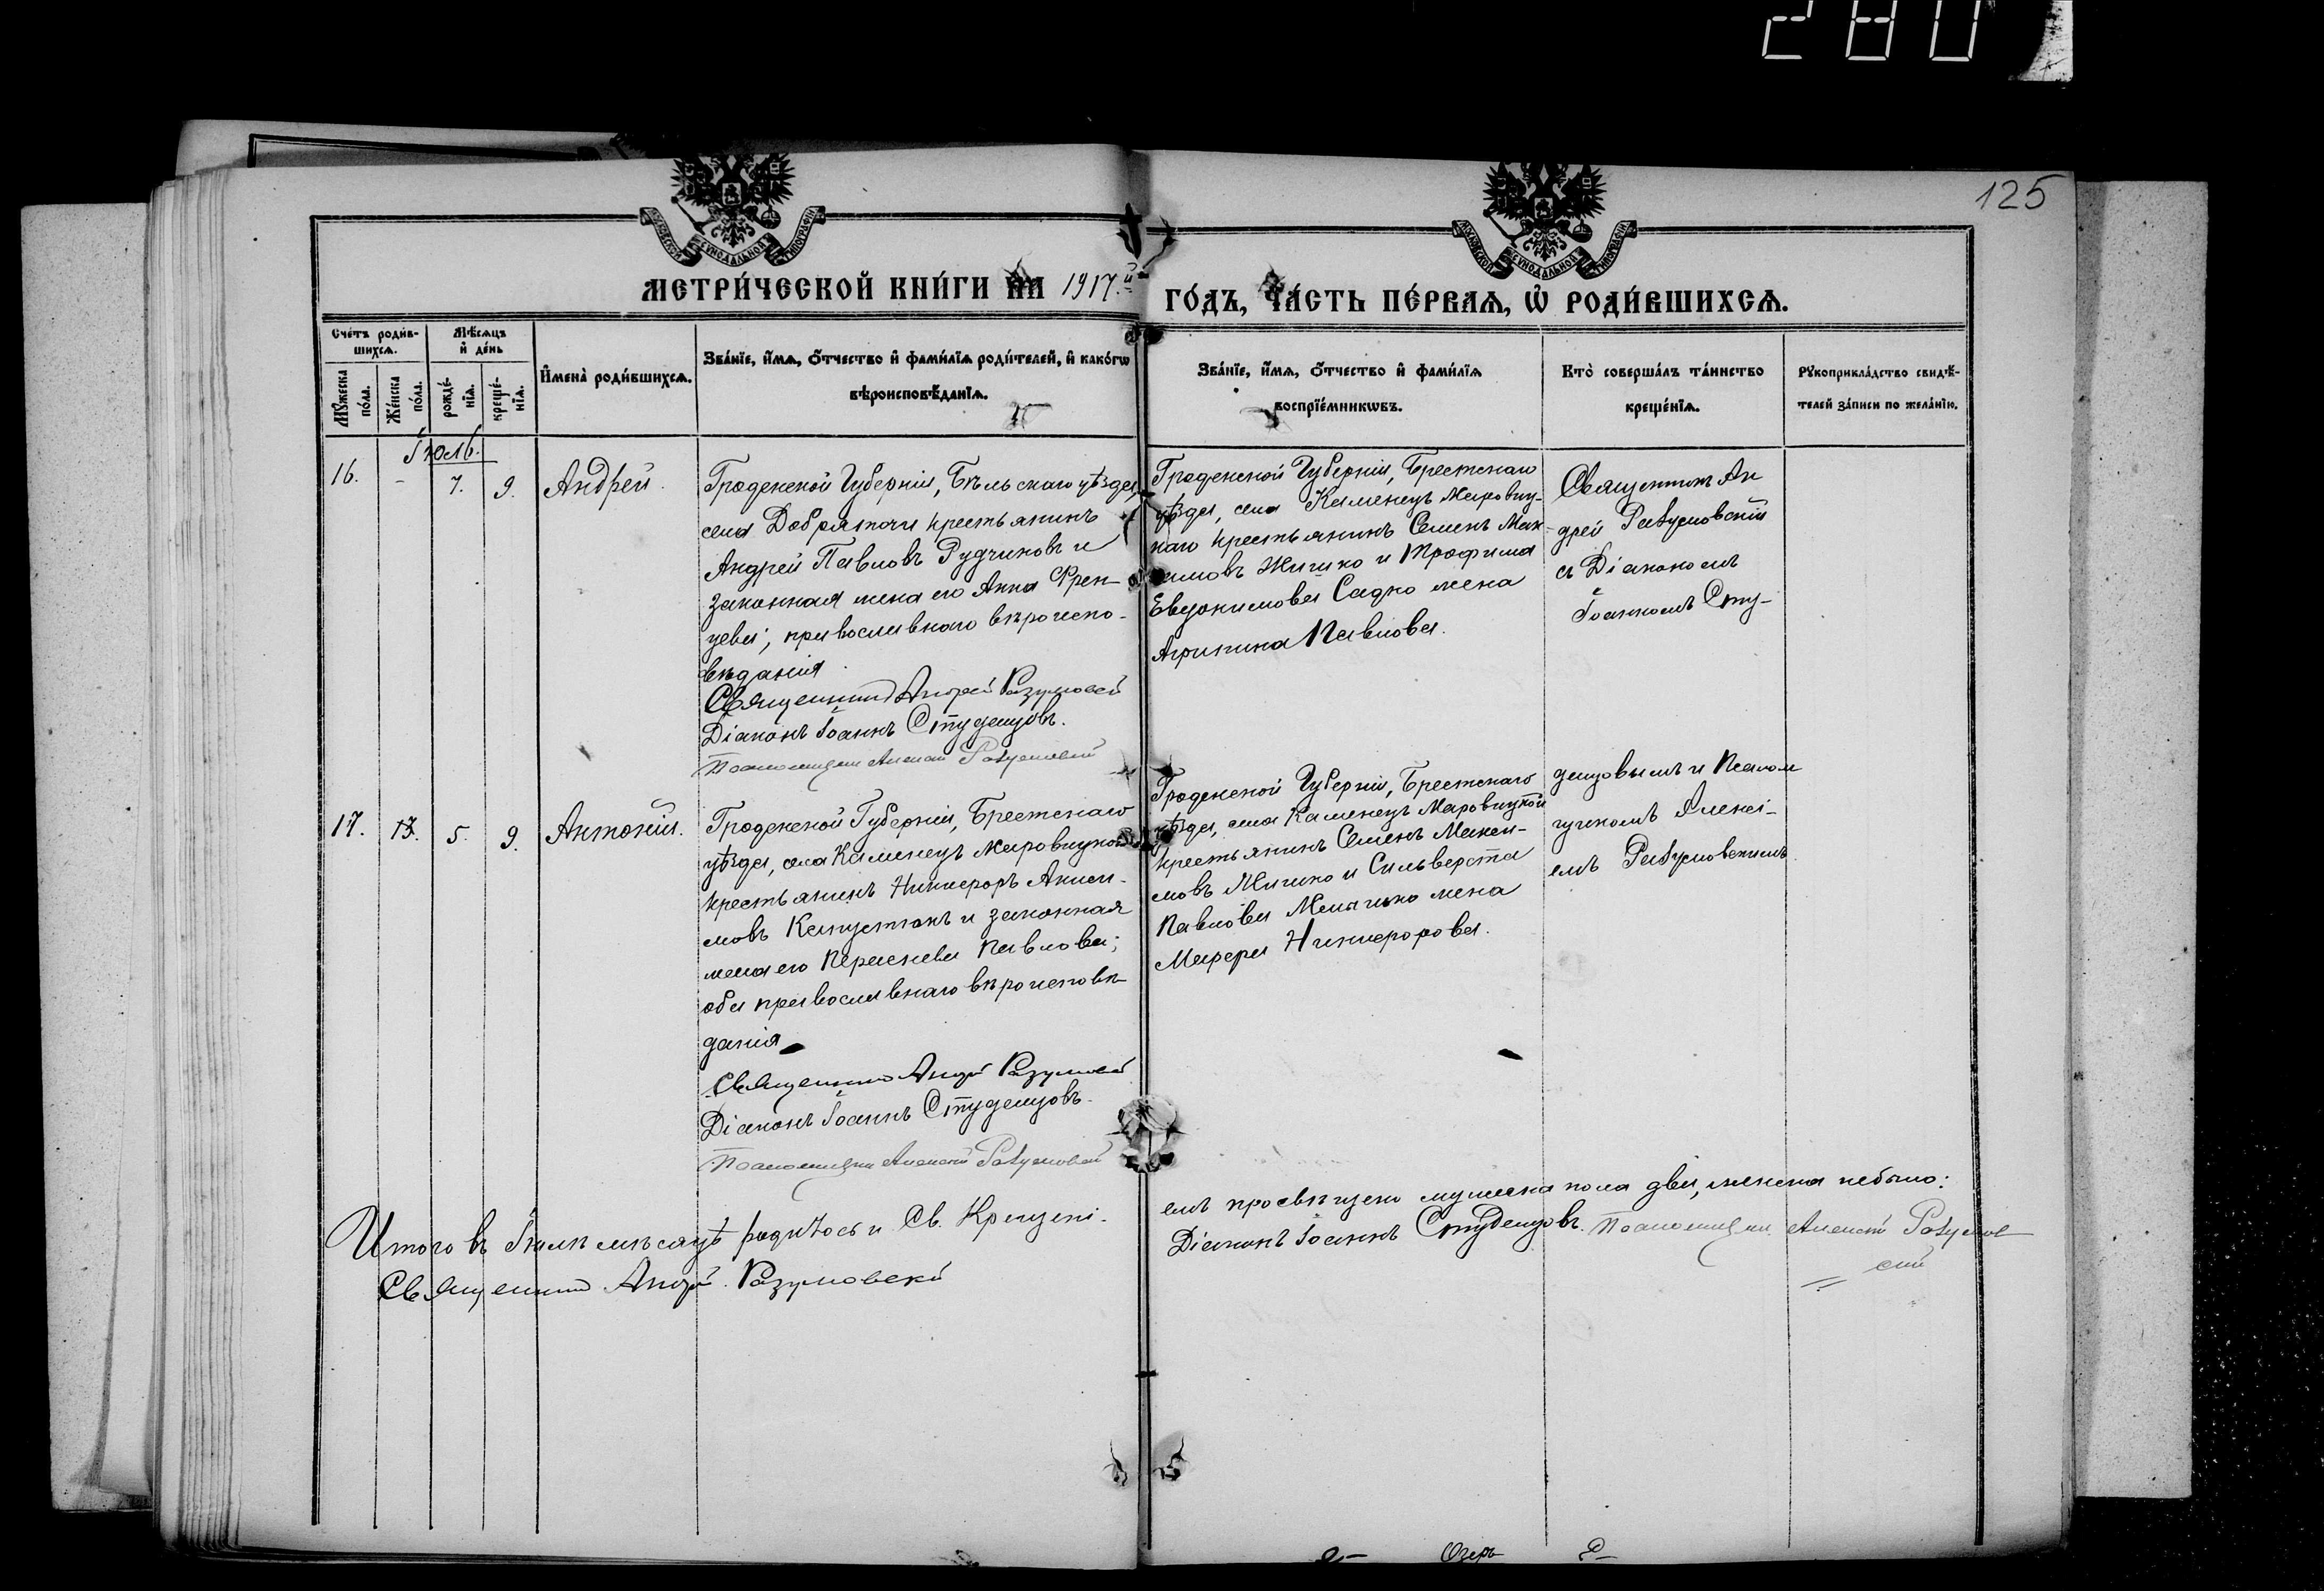 280
125
МОСКОВСКОЙ СѴНОДАЛЬНОЙ ТИПОГРАФІИ
МОСКОВСКОЙ СѴНОДАЛЬНОЙ ТИПОГРАФІИ
МЕТРИ́ЧЕСКОЙ КНИ́ГИ НА 1917.й
ГО́ДЪ, ЧА́СТЬ ПЕ́РВАѦ, Ѡ҆ РОДИ́ВШИХСѦ.
Сче́тъ роди́в-
шихсѧ.
Мѣ́сѧцъ
и҆ де́нь
Мꙋ́жеска
по́ла.
Же́нска
по́ла.
рожде́-
нїѧ.
креще́-
нїѧ.
И҆мена̀ роди́вшихсѧ.
Зва́нїе, и҆́мѧ, ѻ҆́тчество и҆ фами́лїѧ роди́телей, и҆ како́гѡ
вѣроисповѣ́данїѧ.
Зва́нїе, и҆́мѧ, ѻ҆́тчество и҆ фами́лїѧ
воспрїе́мникѡвъ.
Кто̀ соверша́лъ та́инство
креще́нїѧ.
Рꙋкоприкла́дство свидѣ́-
телей за́писи по жела́нїю.
Іюль.
16. - 7. 9. Андрей.
Гродненской Губерніи, Бѣльскаго уѣзда,
села Добратичи крестьянинъ
Андрей Павловъ Рудчиковъ и
законная жена его Анна Френ-
цева; православнаго вѣроиспо-
вѣданія.
Священникъ Андрей Разумовскій
Діаконъ Іоаннъ Студенцовъ.
Псаломщикъ Алексѣй Разумовскій
Гродненской Губерніи, Брестскаго
уѣзда, села Каменецъ Жировиц-
каго крестьянинъ Семенъ Мак-
симовъ Жишко и Трофима
Евдокимова Садко жена
Агрипина Павлова.
Священникъ Ан
дрей Разумовскій
съ Діакономъ
Іоанномъ Сту-
денцовымъ и Псалом
щикомъ Алексі-
емъ Разумовскимъ
17. 13. 5. 9. Антоній.
Гродненской Губерніи, Брестскаго
уѣзда, села Каменецъ Жировицкой
крестьянинъ Никифоръ Аким-
мовъ Капустюкъ и законная
жена его Параскева Павлова;
оба православнаго вѣроисповѣ-
данія
Священникъ Андрей Разумовскій
Діаконъ Іоаннъ Студенцовъ.
Псаломщикъ Алексѣй Разумовскій
Гродненской Губерніи, Брестскаго
уѣзда, села Каменецъ Жировицкой
крестьянинъ Семенъ Макси-
мовъ Жишко и Сильверста
Павлова жена
Марфа Никифорова.
Итого въ Іюлѣ мѣсяцѣ родилось и Св. Крещені-
емъ просвѣщено мужеска пола два, женска небыло:
Священникъ Андрей Разумовскій
Діаконъ Іоаннъ Студенцовъ. Псаломщикъ Алексѣй Разумов
скій